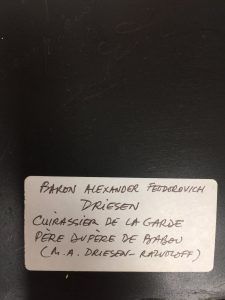 BARON ALEXANDER FEODOROVICH
DRIESEN
CUIRASSIER DE LA GARDE
PÈRE DU PÈRE DE BABOU
(M. A. DRIESEN-RAZVOLOFF)